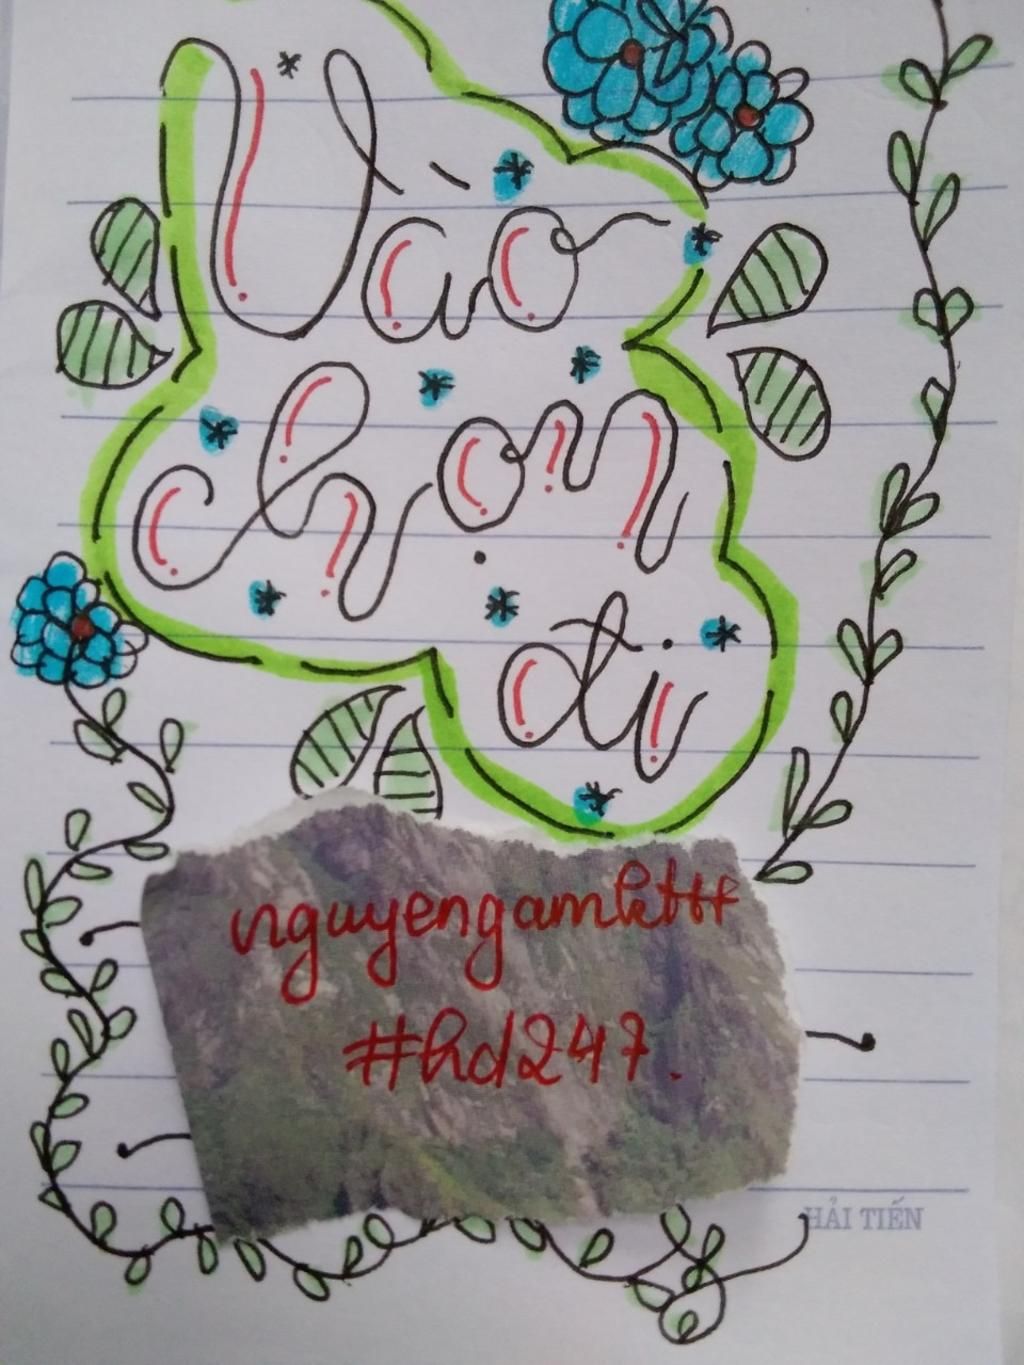 Vào
chọn
đi
nguyengamkttt
#hd247.
HẢI TIẾN